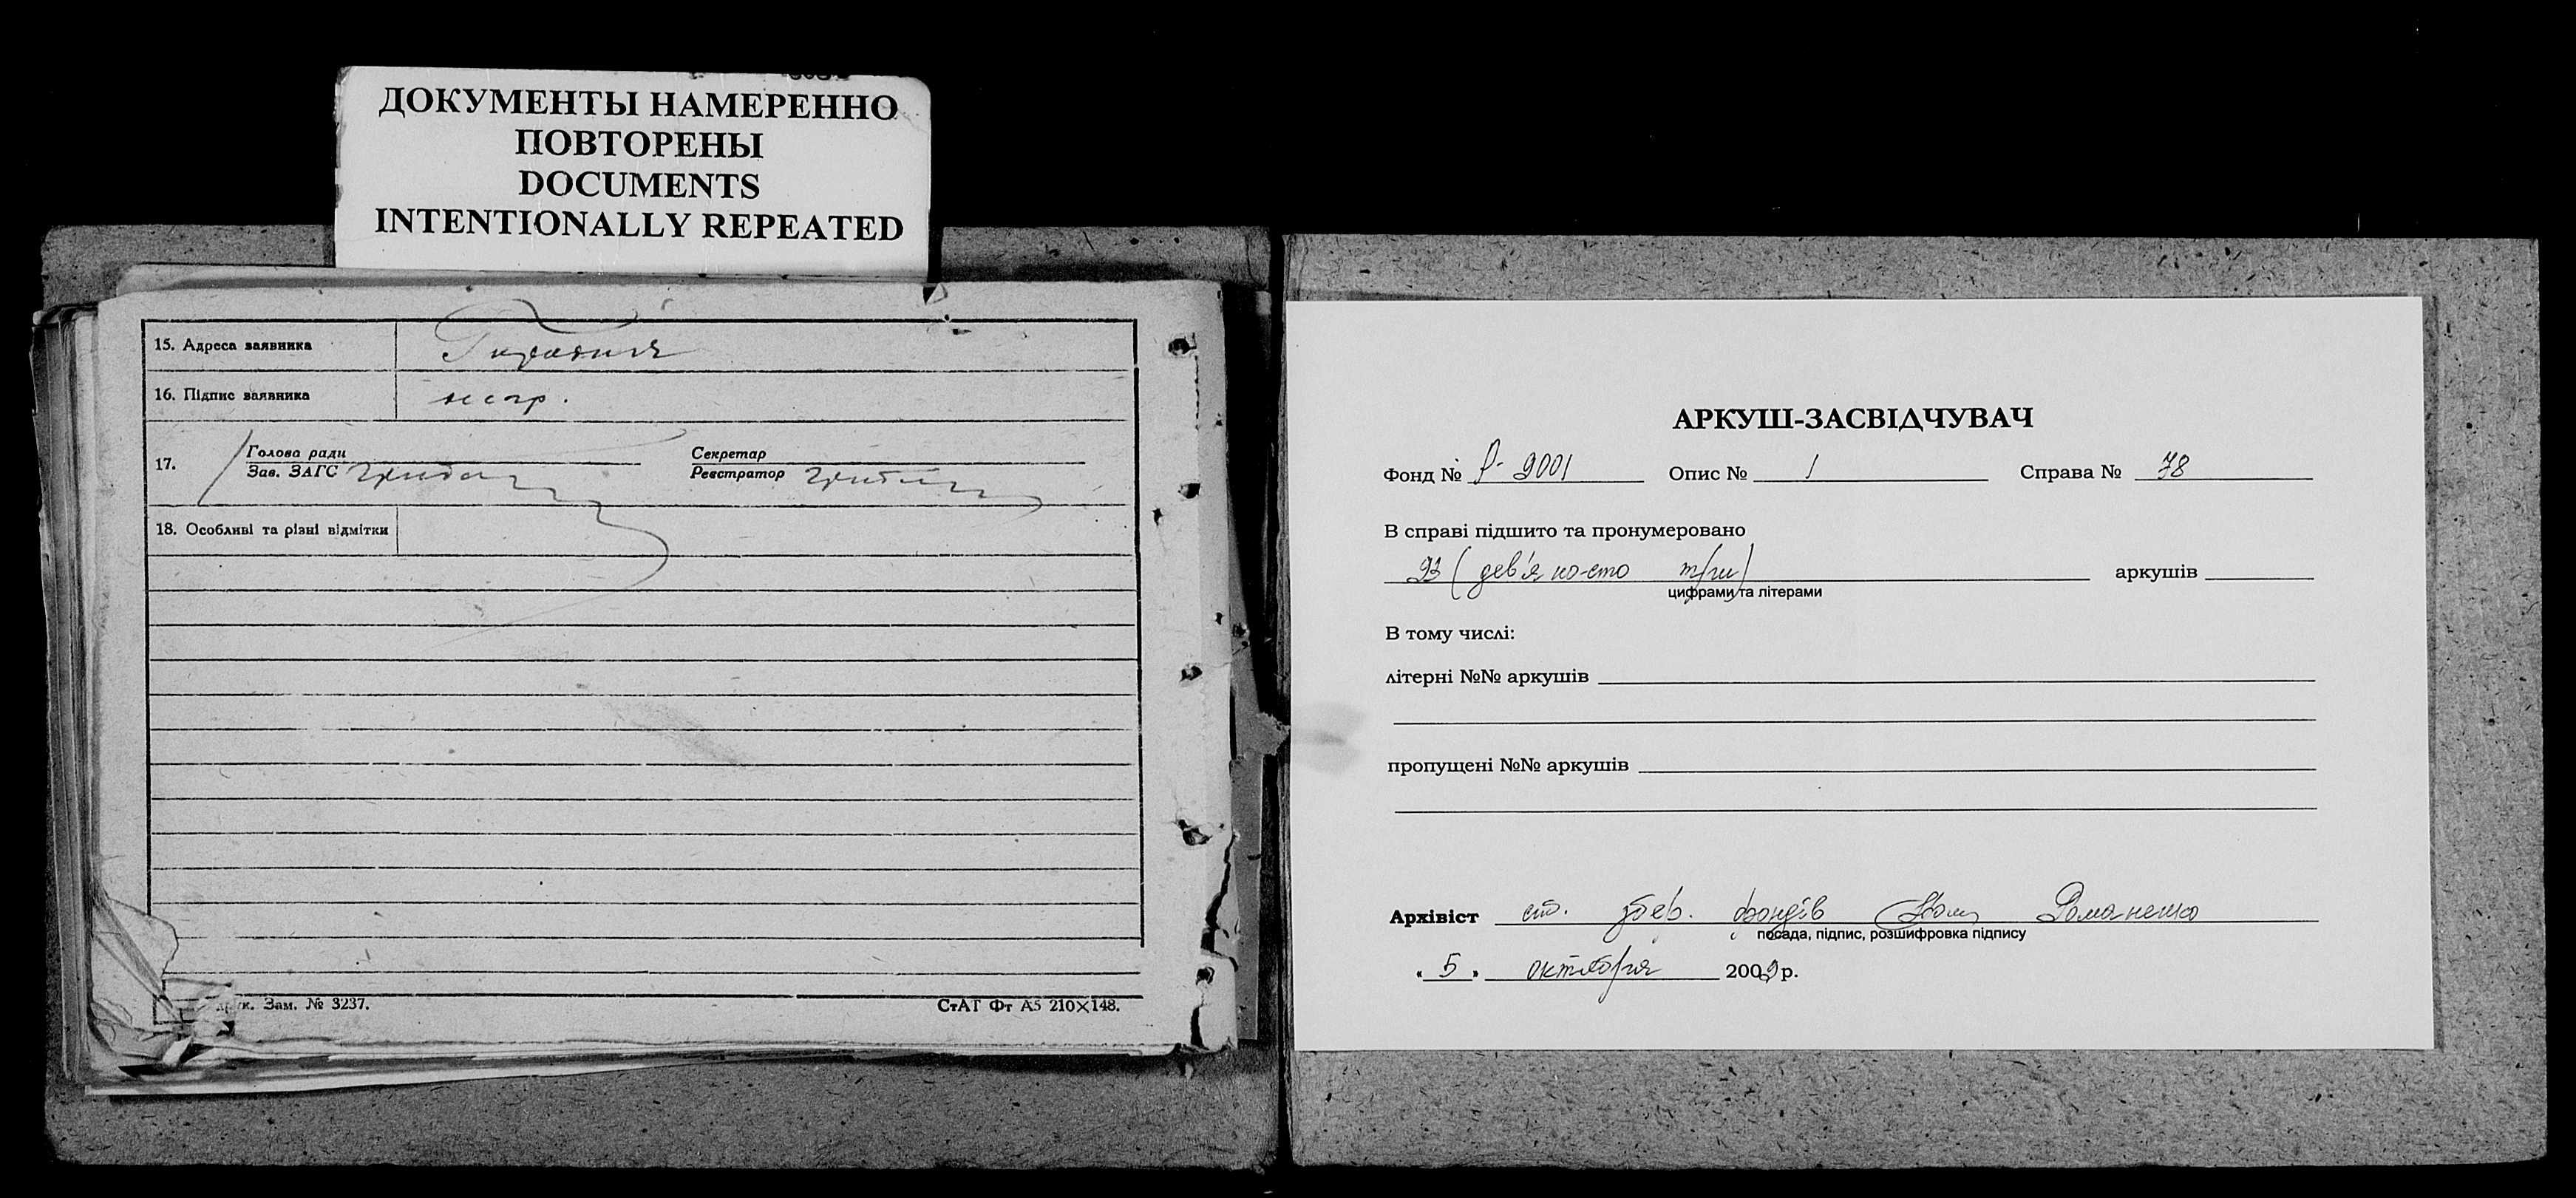 ДОКУМЕНТЫ НАМЕРЕННО
ПОВТОРЕНЫ
DOCUMENTS
INTENTIONALLY REPEATED
15. Адреса заявника
16. Підпис заявника негр.
17. Голова ради Секретар
Зав. ЗАГС Реєстратор
18. Особливі та різні відмітки
Зам. № 3237. СтАТ Фт А5 210×148.
АРКУШ-ЗАСВІДЧУВАЧ
Фонд № Р-9001 Опис № 1 Справа № 78
В справі підшито та пронумеровано
93 (дев'яносто три) аркушів
цифрами та літерами
В тому числі:
літерні №№ аркушів
пропущені №№ аркушів
Архівіст ст. збер. фондів Романенко
посада, підпис, розшифровка підпису
«5» октября 2009 р.